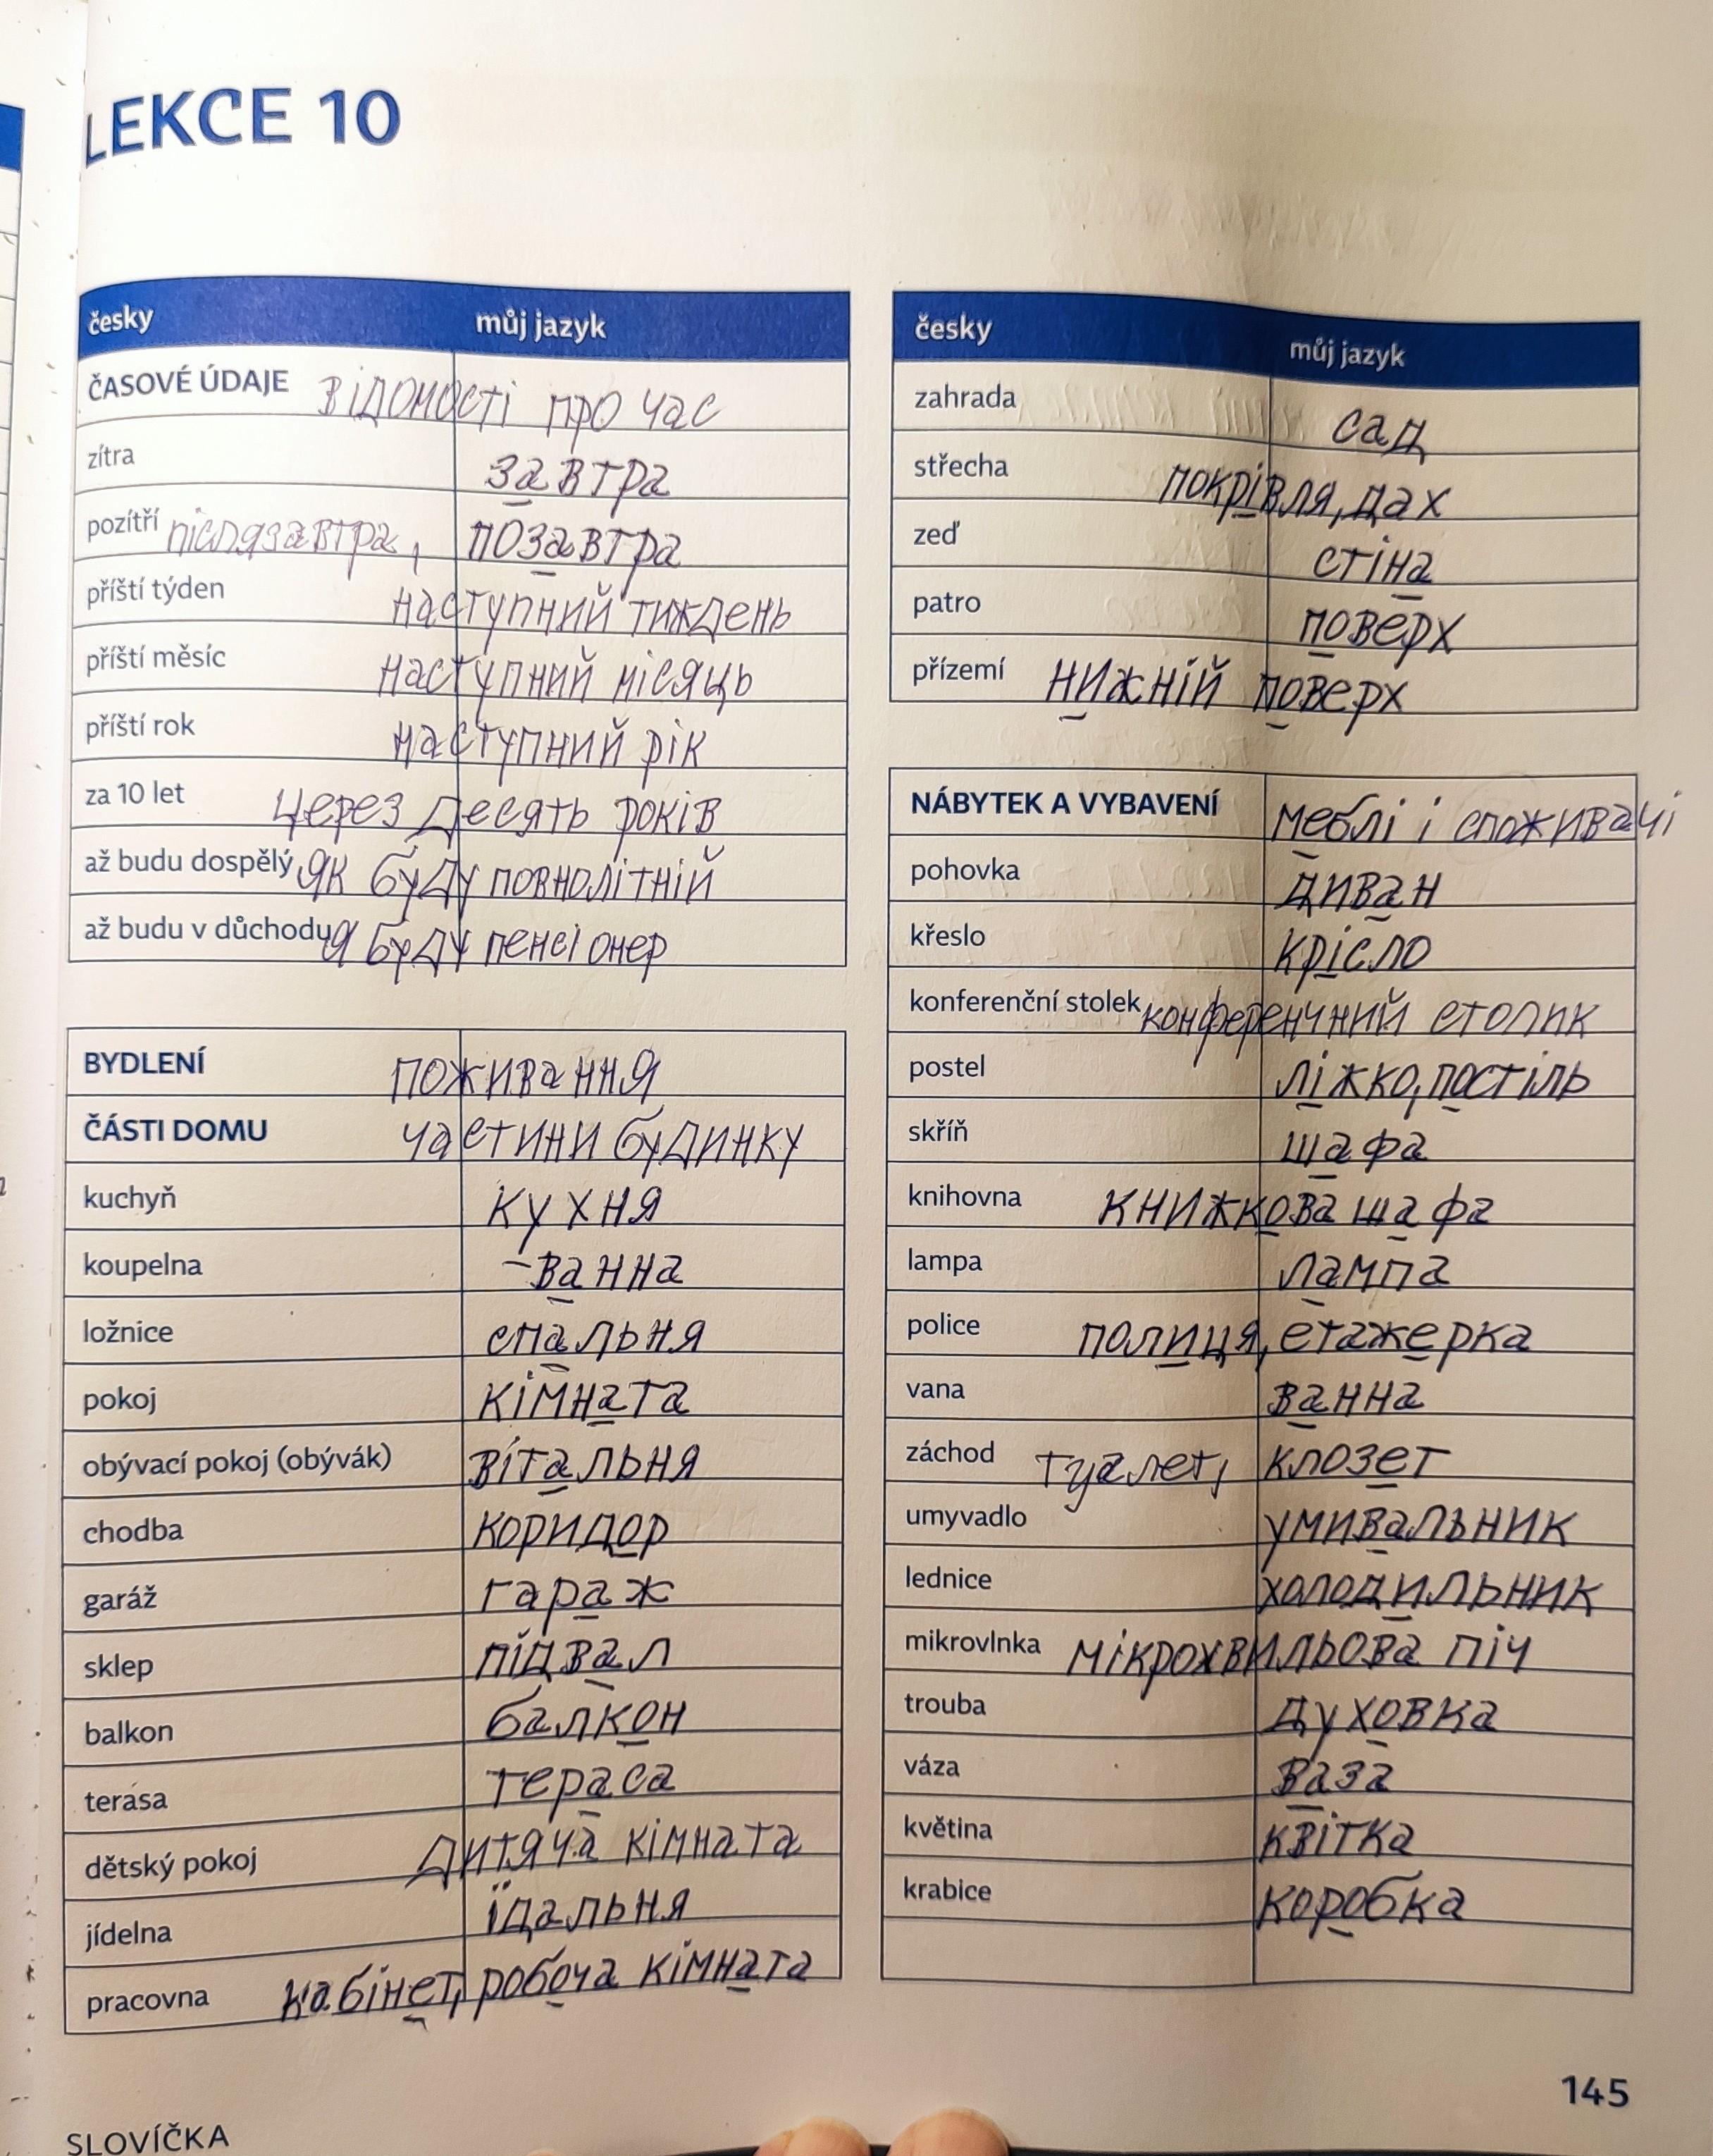 LEKCE 10
česky můj jazyk
ČASOVÉ ÚDAJE відомості про час
zítra завтра
pozítří післязавтра, позавтра
příští týden наступний тиждень
příští měsíc наступний місяць
příští rok наступний рік
za 10 let через десять років
až budu dospělý як буду повнолітній
až budu v důchodu я буду пенсіонер
BYDLENÍ поживання
ČÁSTI DOMU частини будинку
kuchyň кухня
koupelna ванна
ložnice спальня
pokoj кімната
obývací pokoj (obývák) вітальня
chodba коридор
garáž гараж
sklep підвал
balkon балкон
terasa тераса
dětský pokoj дитяча кімната
jídelna їдальня
pracovna кабінет, робоча кімната
česky můj jazyk
zahrada сад
střecha покрівля, дах
zeď стіна
patro поверх
přízemí нижній поверх
NÁBYTEK A VYBAVENÍ меблі і споживачі
pohovka диван
křeslo крісло
konferenční stolek конференчний столик
postel ліжко, постіль
skříň шафа
knihovna книжкова шафа
lampa лампа
police полиця, етажерка
vana ванна
záchod туалет, клозет
umyvadlo умивальник
lednice холодильник
mikrovlnka мікрохвильова піч
trouba духовка
váza ваза
květina квітка
krabice коробка
145
SLOVÍČKA